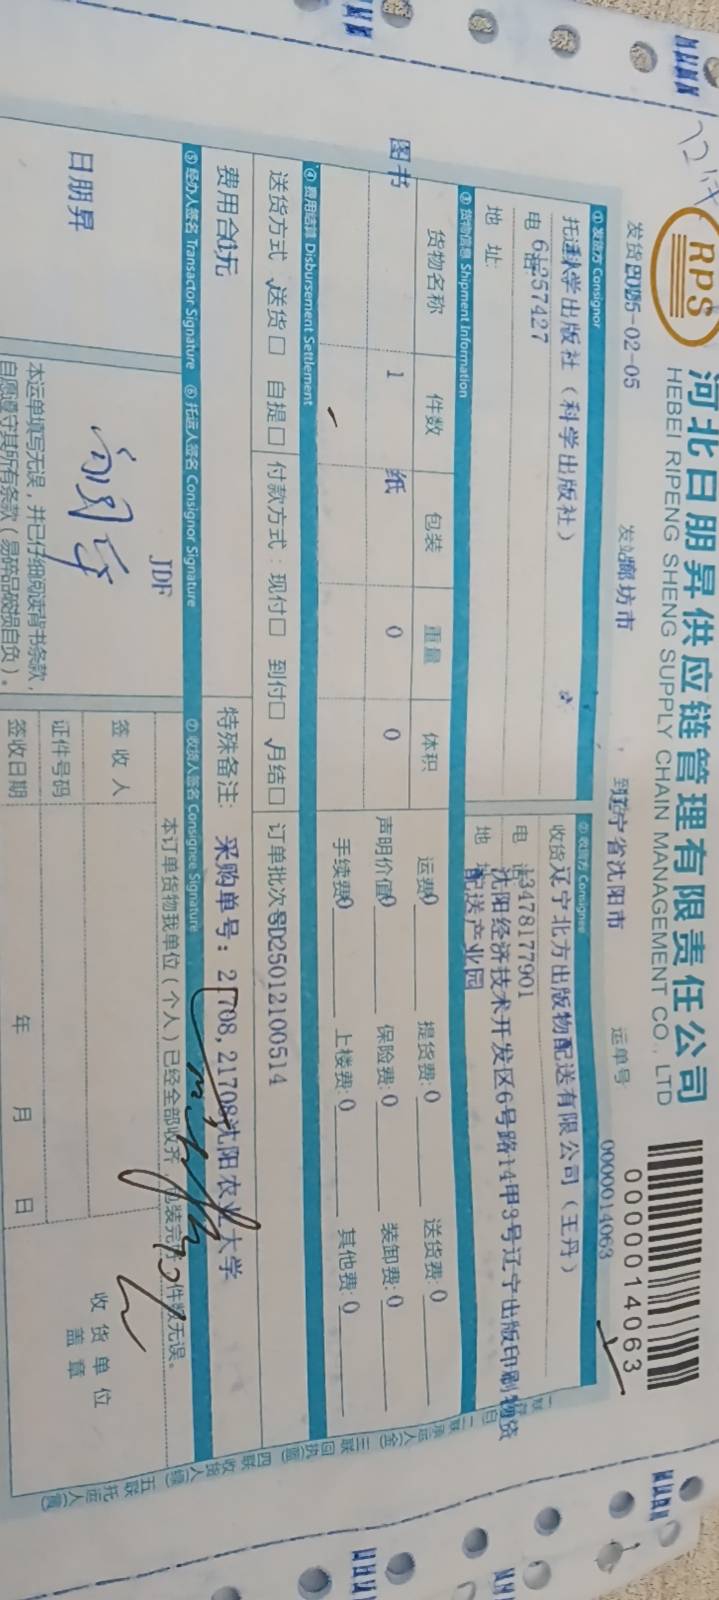 RPS
河北日朋昇供应链管理有限责任公司
HEBEI RIPENG SHENG SUPPLY CHAIN MANAGEMENT CO., LTD
0000014063
发货日期 2025-02-05
发站 廊坊市
到站 辽宁省沈阳市
运单号 0000014063
① 发货方 Consignor
托运人 科学出版社（科学出版社）
电话 61257427
地 址:
② 收货方 Consignee
收货 辽宁北方出版物配送有限公司（王丹）
电 话 13478177901
地 址 沈阳经济技术开发区6号路14甲3号辽宁出版印刷物资
配送产业园
③ 货物信息 Shipment Information
货物名称 件数 包装 重量 体积
图书 1 纸 0 0
运费 0 提货费: 0 送货费: 0
声明价值 0 保险费: 0 装卸费: 0
手续费 0 上楼费: 0 其他费: 0
④ 费用结算 Disbursement Settlement
送货方式 √送货□ 自提□ 付款方式：现付□ 到付□ √月结□ 订单批次号 SD25012100514
费用合计 0元
特殊备注: 采购单号：21708,21708沈阳农业大学
⑤ 经办人签名 Transactor Signature
⑥ 托运人签名 Consignor Signature
⑦ 收货人签名 Consignee Signature
日朋昇
JDF
本运单填写无误，并已仔细阅读背书条款，
自愿遵守其所有条款（易碎品破损自负）。
本订单货物我单位（个人）已经全部收齐，包装完好，件数无误。
签 收 人
证件号码
签收日期 年 月 日
收 货 单 位
盖 章